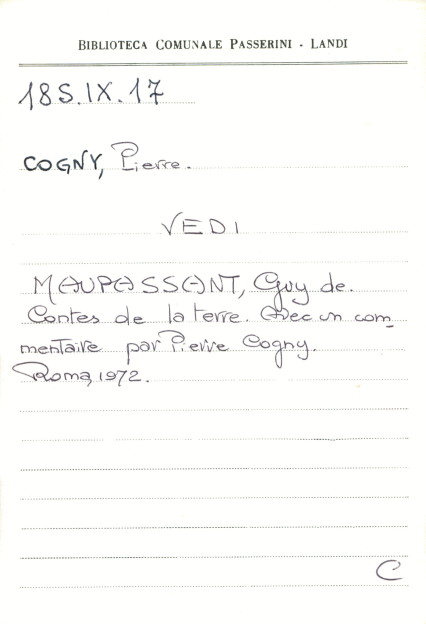 BIBLIOTECA COMUNALE PASSERINI - LANDI
18S.IX.17
COGNY, Pierre.
VEDI
MAUPASSANT, Guy de.
Contes de la terre. Avec un com_
mentaire par Pierre Cogny.
Roma, 1972.
C